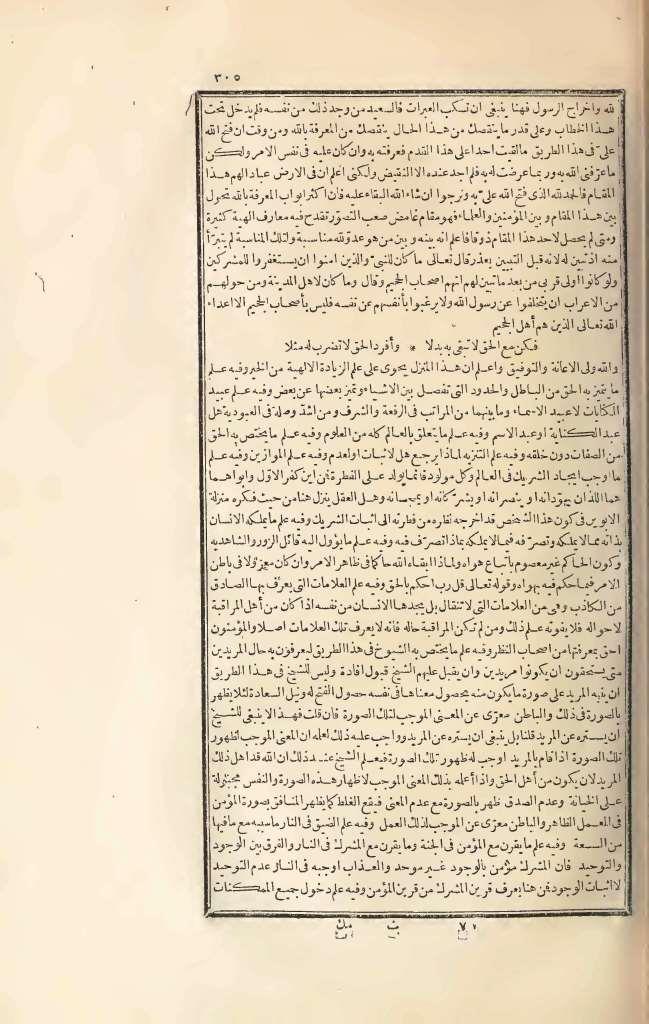 ٣٠٥
لله واخراج الرسول فهنا ينبغى ان تسكب العبرات فالسعيد من وجد ذلك من نفسه فلم يدخل تحت
هذا الخطاب وعلى قدر ما ينقصك من هذا الحال ينقصك من المعرفة بالله ومن وقت ان فتح الله
علىّ فى هذا الطريق ما لقيت احدا على هذا القدم فعرفته به وان كان عليه فى نفس الامر ولكن
ما عرّفنى الله به وربما عرضت له به فلم اجد عنده الا النقيض ولكنى اعلم ان فى الارض عباد الهم هذا
المقام فالحمد لله الذى فتح الله علىّ به ونرجو ان شاء الله البقاء عليه فان اكثر ابواب المعرفة بالله تحول
بين هذا المقام وبين المؤمنين والعلماء فهو مقام غامض صعب التصوّر تقدح فيه معارف الهية كثيرة
ومتى لم يحصل لاحد هذا المقام ذوقا فاعلم انه بينه وبين من هو عدوّ لله مناسبة ولتلك المناسبة لم يتبرّأ
منه اذ تبين له لانه قبل التبيين يعذر قال تعالى ما كان للنبىّ والذين امنوا ان يستغفروا للمشركين
ولو كانوا اولى قربى من بعد ما تبين لهم انهم اصحاب الجحيم وقال وما كان لاهل المدينة ومن حولهم
من الاعراب ان يتخلفوا عن رسول الله ولا يرغبوا بأنفسهم عن نفسه فليس بأصحاب الجحيم الا اعداء
الله تعالى الذين هم أهل الجحيم
فكن مع الحق لا تبغى به بدلا * وأفرد الحق لا تضرب له مثلا
والله ولى الاعانة والتوفيق واعلم ان هذا المنزل يحوى على علم الزيادة الالهية من الخير وفيه علم
ما يتميز به الحق من الباطل والحدود التى تفصل بين الاشياء وتميز بعضها عن بعض وفيه علم عبيد
الكنايات لا عبيد الاسماء وما بينهما من المراتب فى الرفعة والشرف ومن اشدّ وصلة فى العبودية هل
عبد الكناية او عبد الاسم وفيه علم ما يتعلق بالعالم كله من العلوم وفيه علم ما يختص به الحق
من الصفات دون خلقه وفيه علم التنزيه لماذا يرجع هل لاثبات او لعدم وفيه علم الموازين وفيه علم
ما اوجب ايجاد الشريك فى العالم وكل مولود فانما يولد على الفطرة فمن اين كفر الاوّل وابواهما
هما اللذان يهوّدانه او ينصرانه او يشركانه او يمجسانه وهل العقل ينزل هنا من حيث فكره منزلة
الابوين فى كون هذا الشخص قد اخرجه نظره من فطرته الى اثبات الشريك وفيه علم ما يملكه الانسان
بذاته مما لا يملكه وتصرّفه فيما لا يملكه بماذا تصرّف فيه وفيه علم ما يؤول اليه قائل الزور والشاهد به
وكون الحاكم غير معصوم باتباع هواه ولماذا ابقاه الله حاكما فى ظاهر الامر وان كان معزولا فى باطن
الامر فيما حكم فيه بهواه وقوله تعالى قل رب احكم بالحق وفيه علم العلامات التى يعرف بها الصادق
من الكاذب وهى من العلامات التى لا تنقال بل يجدها الانسان من نفسه اذا كان من أهل المراقبة
لاحواله فلا يفوته علم ذلك ومن لم تكن المراقبة حاله فانه لا يعرف تلك العلامات اصلا والمؤمنون
احق بمعرفتها من اصحاب النظر وفيه علم ما يختص به الشيوخ فى هذا الطريق ليعرفون به حال المريدين
متى يستحقون ان يكونوا مريدين وان يقبل عليهم الشيخ قبول افادة وليس للشيخ فى هذا الطريق
ان ينبه المريد على صورة ما يكون منه بحصول معناها فى نفسه حصول الفتح له ونيل السعادة لئلا يظهر
بالصورة فى ذلك والباطن معرّى عن المعنى الموجب لتلك الصورة فان قلت فهذا لا ينبغى للشيخ
أن يستره عن المريد قلنا بل ينبغى ان يستره عن المريد وواجب عليه ذلك لعلمه ان المعنى الموجب لظهور
تلك الصورة اذا قام بالمريد اوجب له ظهور تلك الصورة فيعلم الشيخ عند ذلك ان الله قد اهل ذلك
المريد لان يكون من أهل الحق واذا أعلمه بذلك المعنى الموجب لاظهار هذه الصورة والنفس مجبولة
على الخيانة وعدم الصدق ظهر بالصورة مع عدم المعنى فيقع الغلط كما يظهر المنافق بصورة المؤمن
فى العمل الظاهر والباطن معرّى عن الموجب لذلك العمل وفيه علم الضيق فى النار ما سببه مع ما فيها
من السعة وفيه علم ما يقرن مع المؤمن فى الجنة وما يقرن مع المشرك فى النار والفرق بين الوجود
والتوحيد فان المشرك مؤمن بالوجود غير موحد والعذاب اوجبه فى النار عدم التوحيد
لا اثبات الوجود فمن هنا يعرف قرين المشرك من قرين المؤمن وفيه علم دخول جميع الممكنات